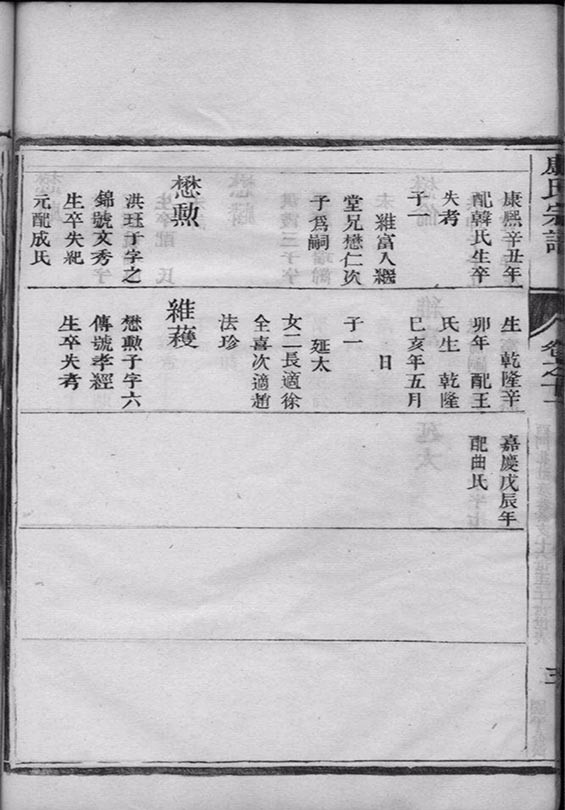 康氏宗譜
卷之十
康熙辛丑年
配韓氏生卒
失考
子一
維富入繼
堂兄懋仁次
子爲嗣
懋勲
洪珏子字之
錦號文秀
生卒失紀
元配成氏
生 乾隆辛
卯年 配王
氏生 乾隆
巳亥年五月
日
子一
延太
女二長適徐
全喜次適趙
法珍
維蕿
懋勲子字六
傳號孝經
生卒失考
嘉慶戊辰年
配曲氏